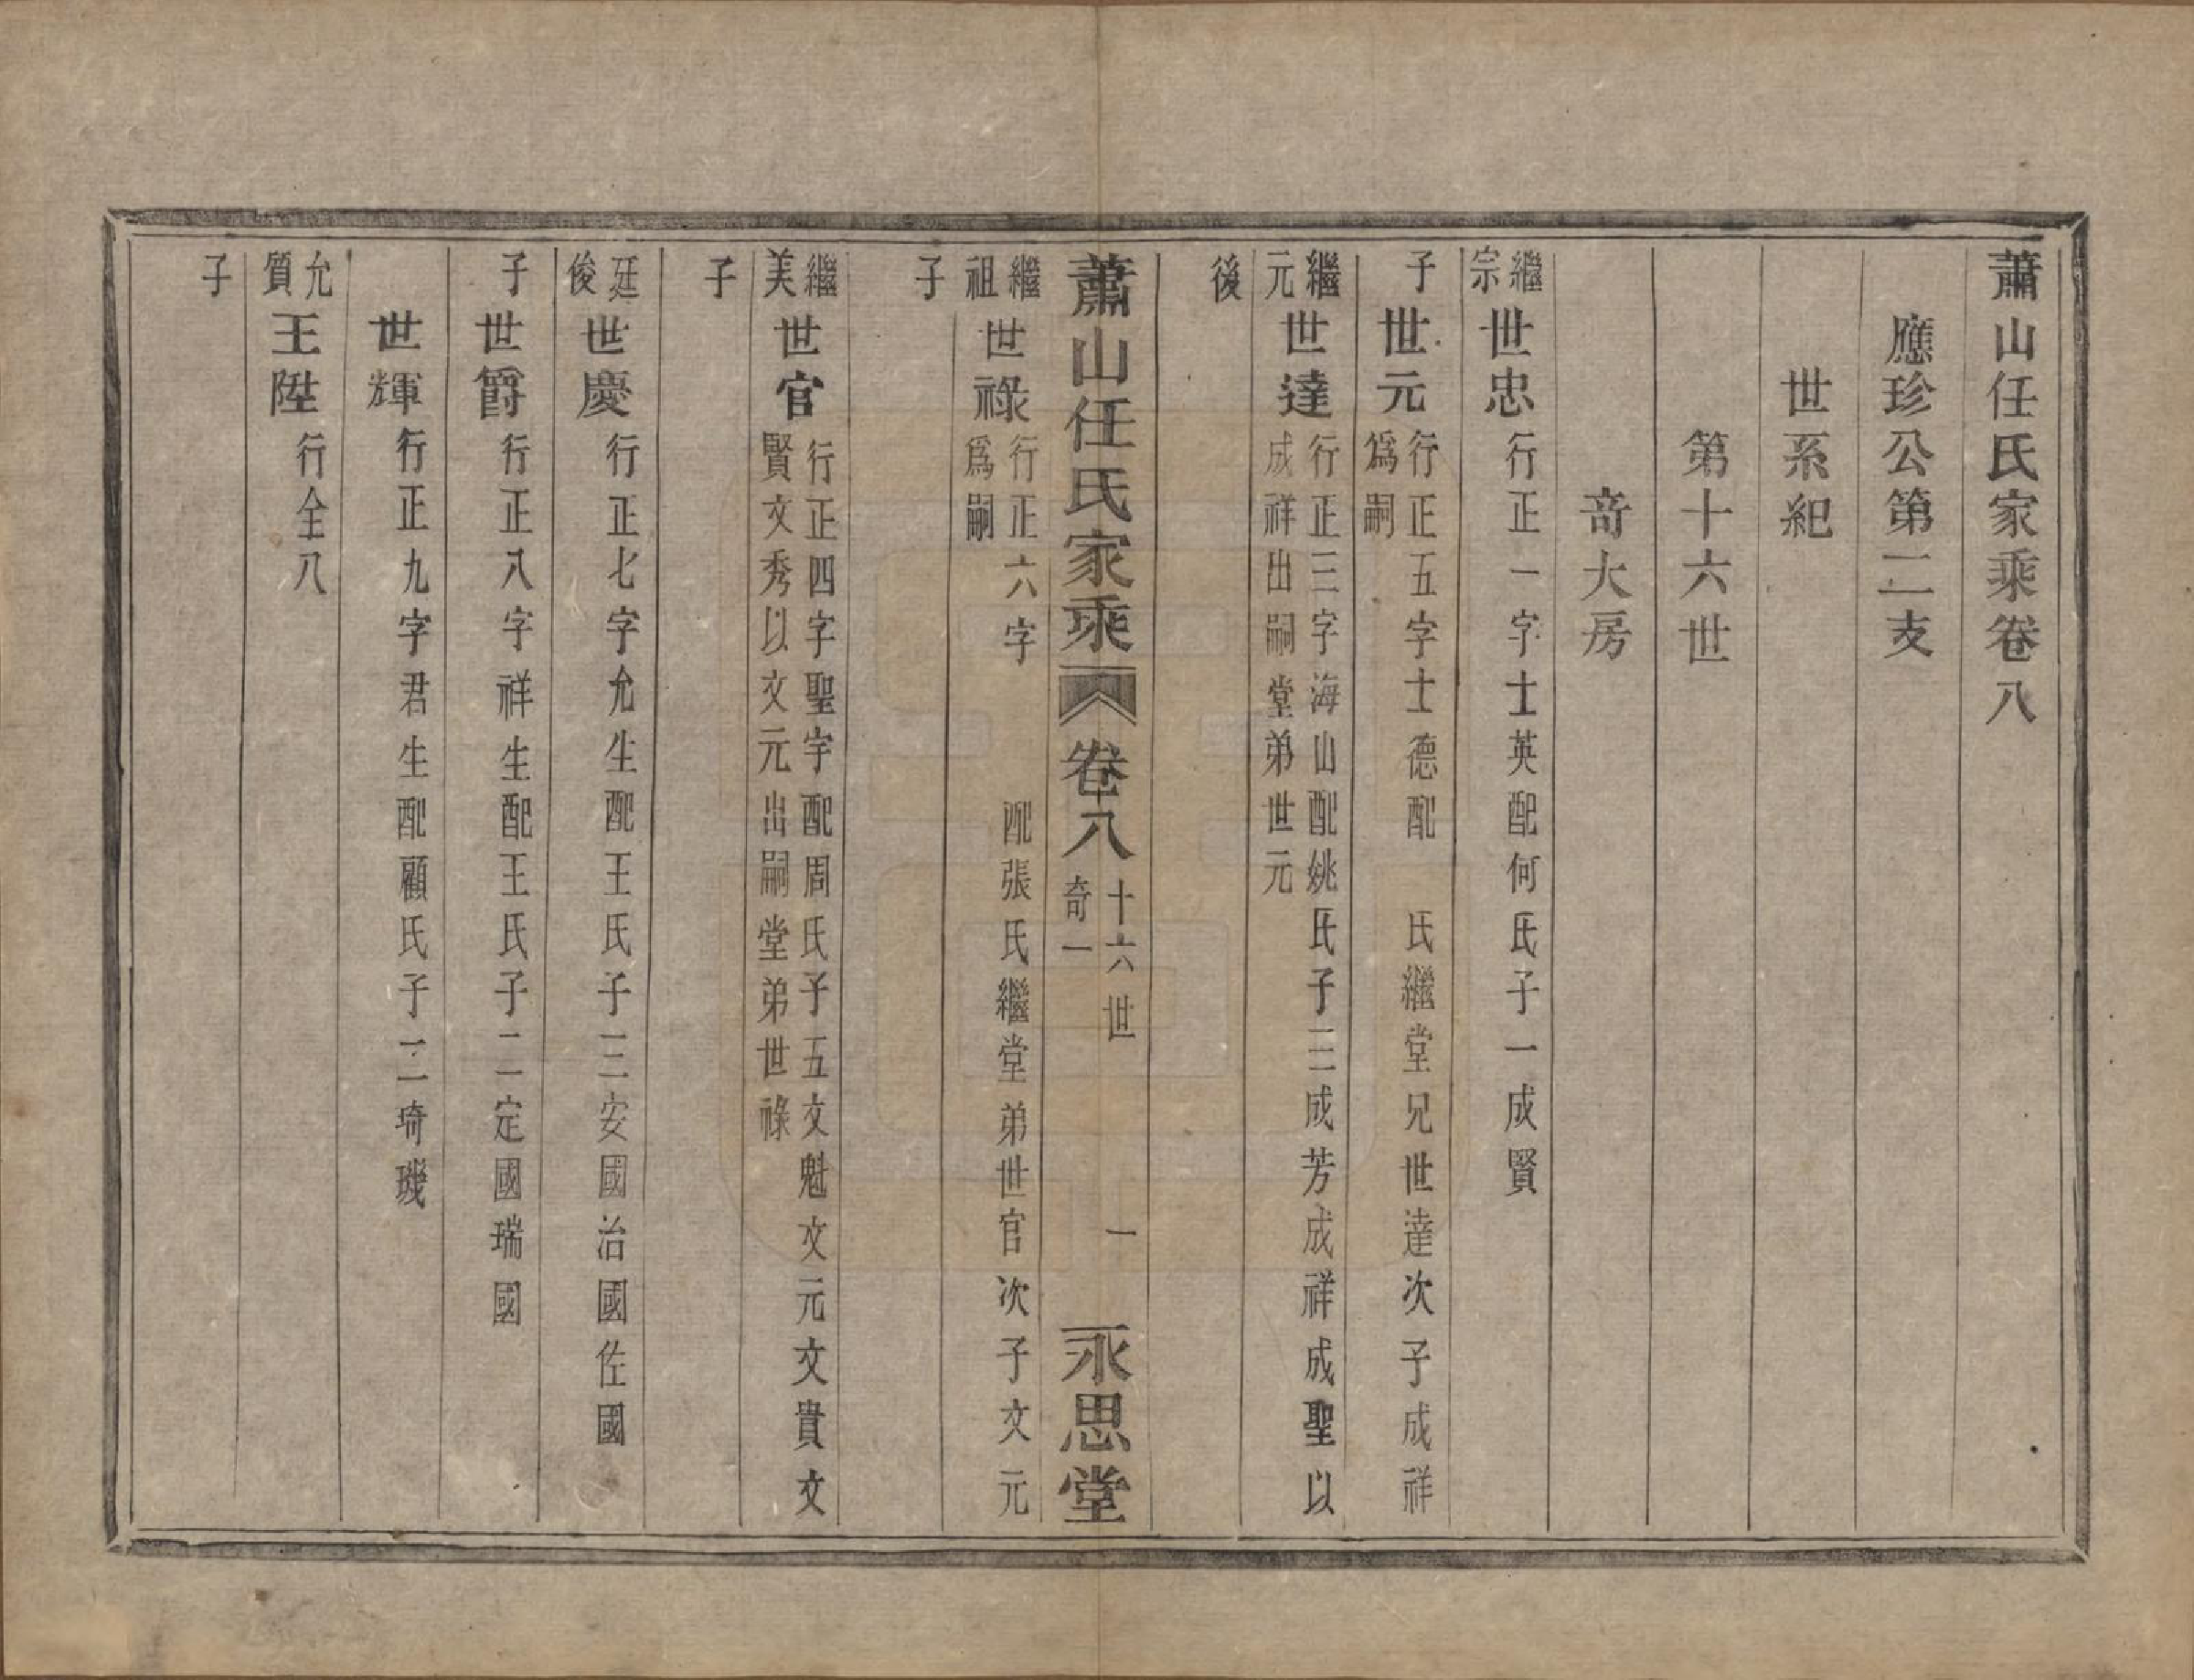 蕭山任氏家乘卷八
應珍公第二支
世系紀
第十六世
奇大房
繼宗子
世忠行正一字士英配何氏子一成賢
世元行正五字士德配　氏繼堂兄世達次子成祥
爲嗣
繼元後
世達行正三字海山配姚氏子三成芳成祥成聖以
成祥出嗣堂弟世元
蕭山任氏家乘 卷八 十六世 奇一 一 永思堂
繼祖子
世祿行正六字　配張氏繼堂弟世官次子文元
爲嗣
繼美子
世官行正四字聖宇配周氏子五文魁文元文貴文
賢文秀以文元出嗣堂弟世祿
廷俊子
世慶行正七字允生配王氏子三安國治國佐國
世爵行正八字祥生配王氏子二定國瑞國
世輝行正九字君生配顧氏子二琦璣
允質子
王陞行全八